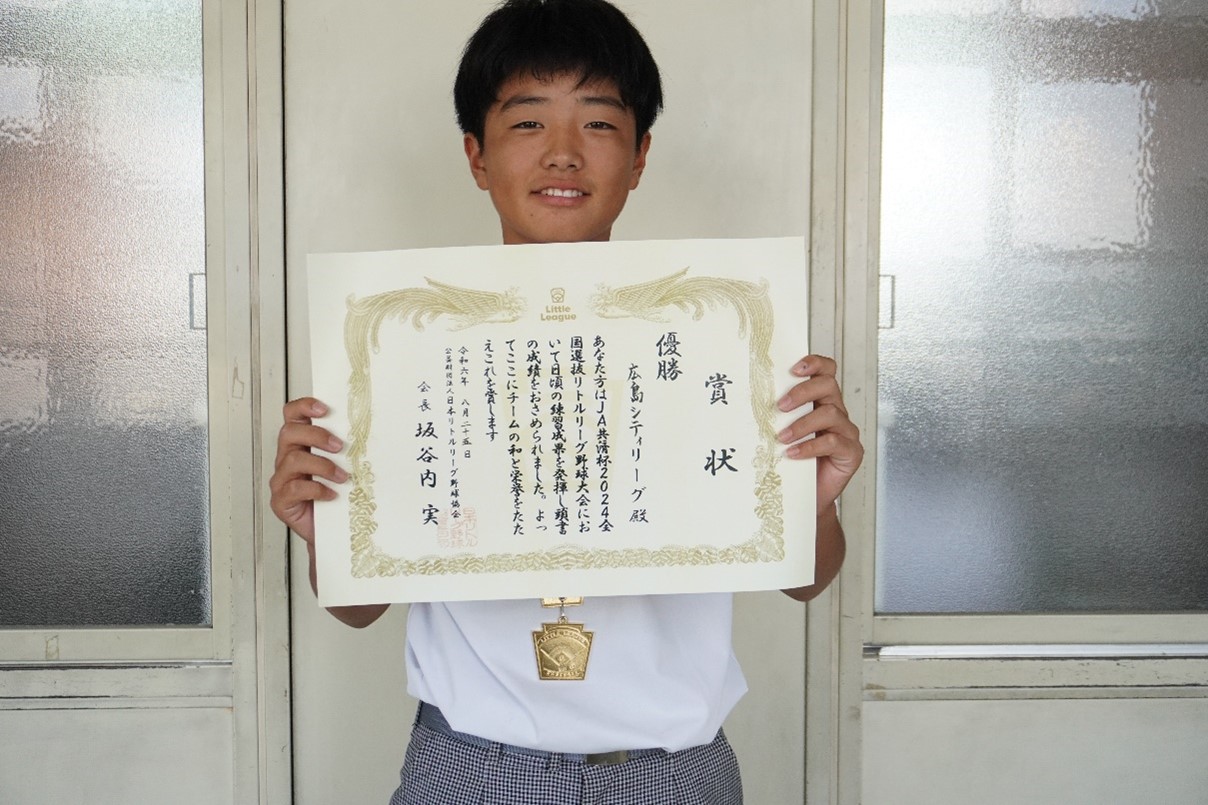 Little
League
賞状
優勝
広島シティリーグ殿
あなた方はJA共済杯2024全
国選抜リトルリーグ野球大会にお
いて日頃の練習成果を発揮し頭書
の成績をおさめられました。よっ
てここにチームの和と栄誉をたた
えこれを賞します
令和六年 八月二十五日
公益財団法人日本リトルリーグ野球協会
会長 坂谷内 実
LITTLE LEAGUE
BASEBALL